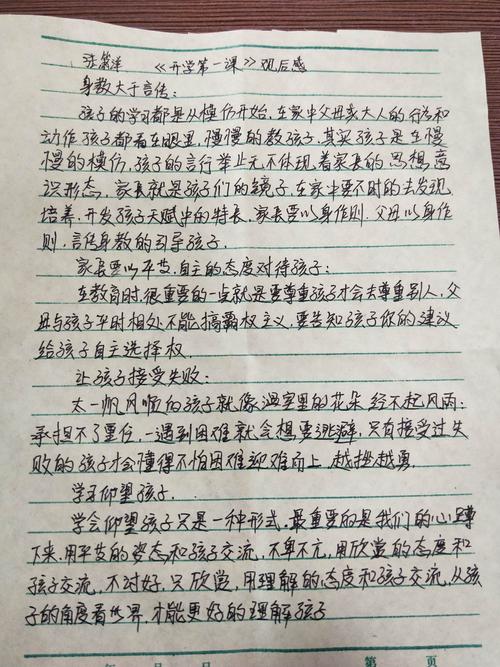 《开学第一课》观后感
身教大于言传：
孩子的学习都是从模仿开始，在家中父母亲大人的行为和
动作孩子都看在眼里，慢慢的教孩子，其实孩子是在慢
慢的模仿，孩子的言行举止无不体现着家长的思想，意
识形态，家长就是孩子们的镜子，在家中要不时的去发现
培养，开发孩子天赋中的特长，家长要以身作则，父母以身作
则，言传身教的引导孩子，
家长要以平等、自主的态度对待孩子：
在教育时，很重要的一点就是要尊重孩子才会去尊重别人，父
母与孩子平时相处不能搞霸权主义，要告知孩子你的建议
给孩子自主选择权。
让孩子接受失败：
太一帆风顺的孩子就像温室里的花朵经不起风雨；
承担不了重任，一遇到困难就会想要逃避，只有接受过失
败的孩子才会懂得不怕困难迎难而上，越挫越勇。
学习仰望孩子，
学会仰望孩子只是一种形式，最重要的是我们的心蹲
下来，用平等的姿态和孩子交流，不卑不亢，用欣赏的态度和
孩子交流，不讨好，只欣赏，用理解的态度和孩子交流，从孩
子的角度看世界，才能更好的理解孩子
年 月 日 第 页